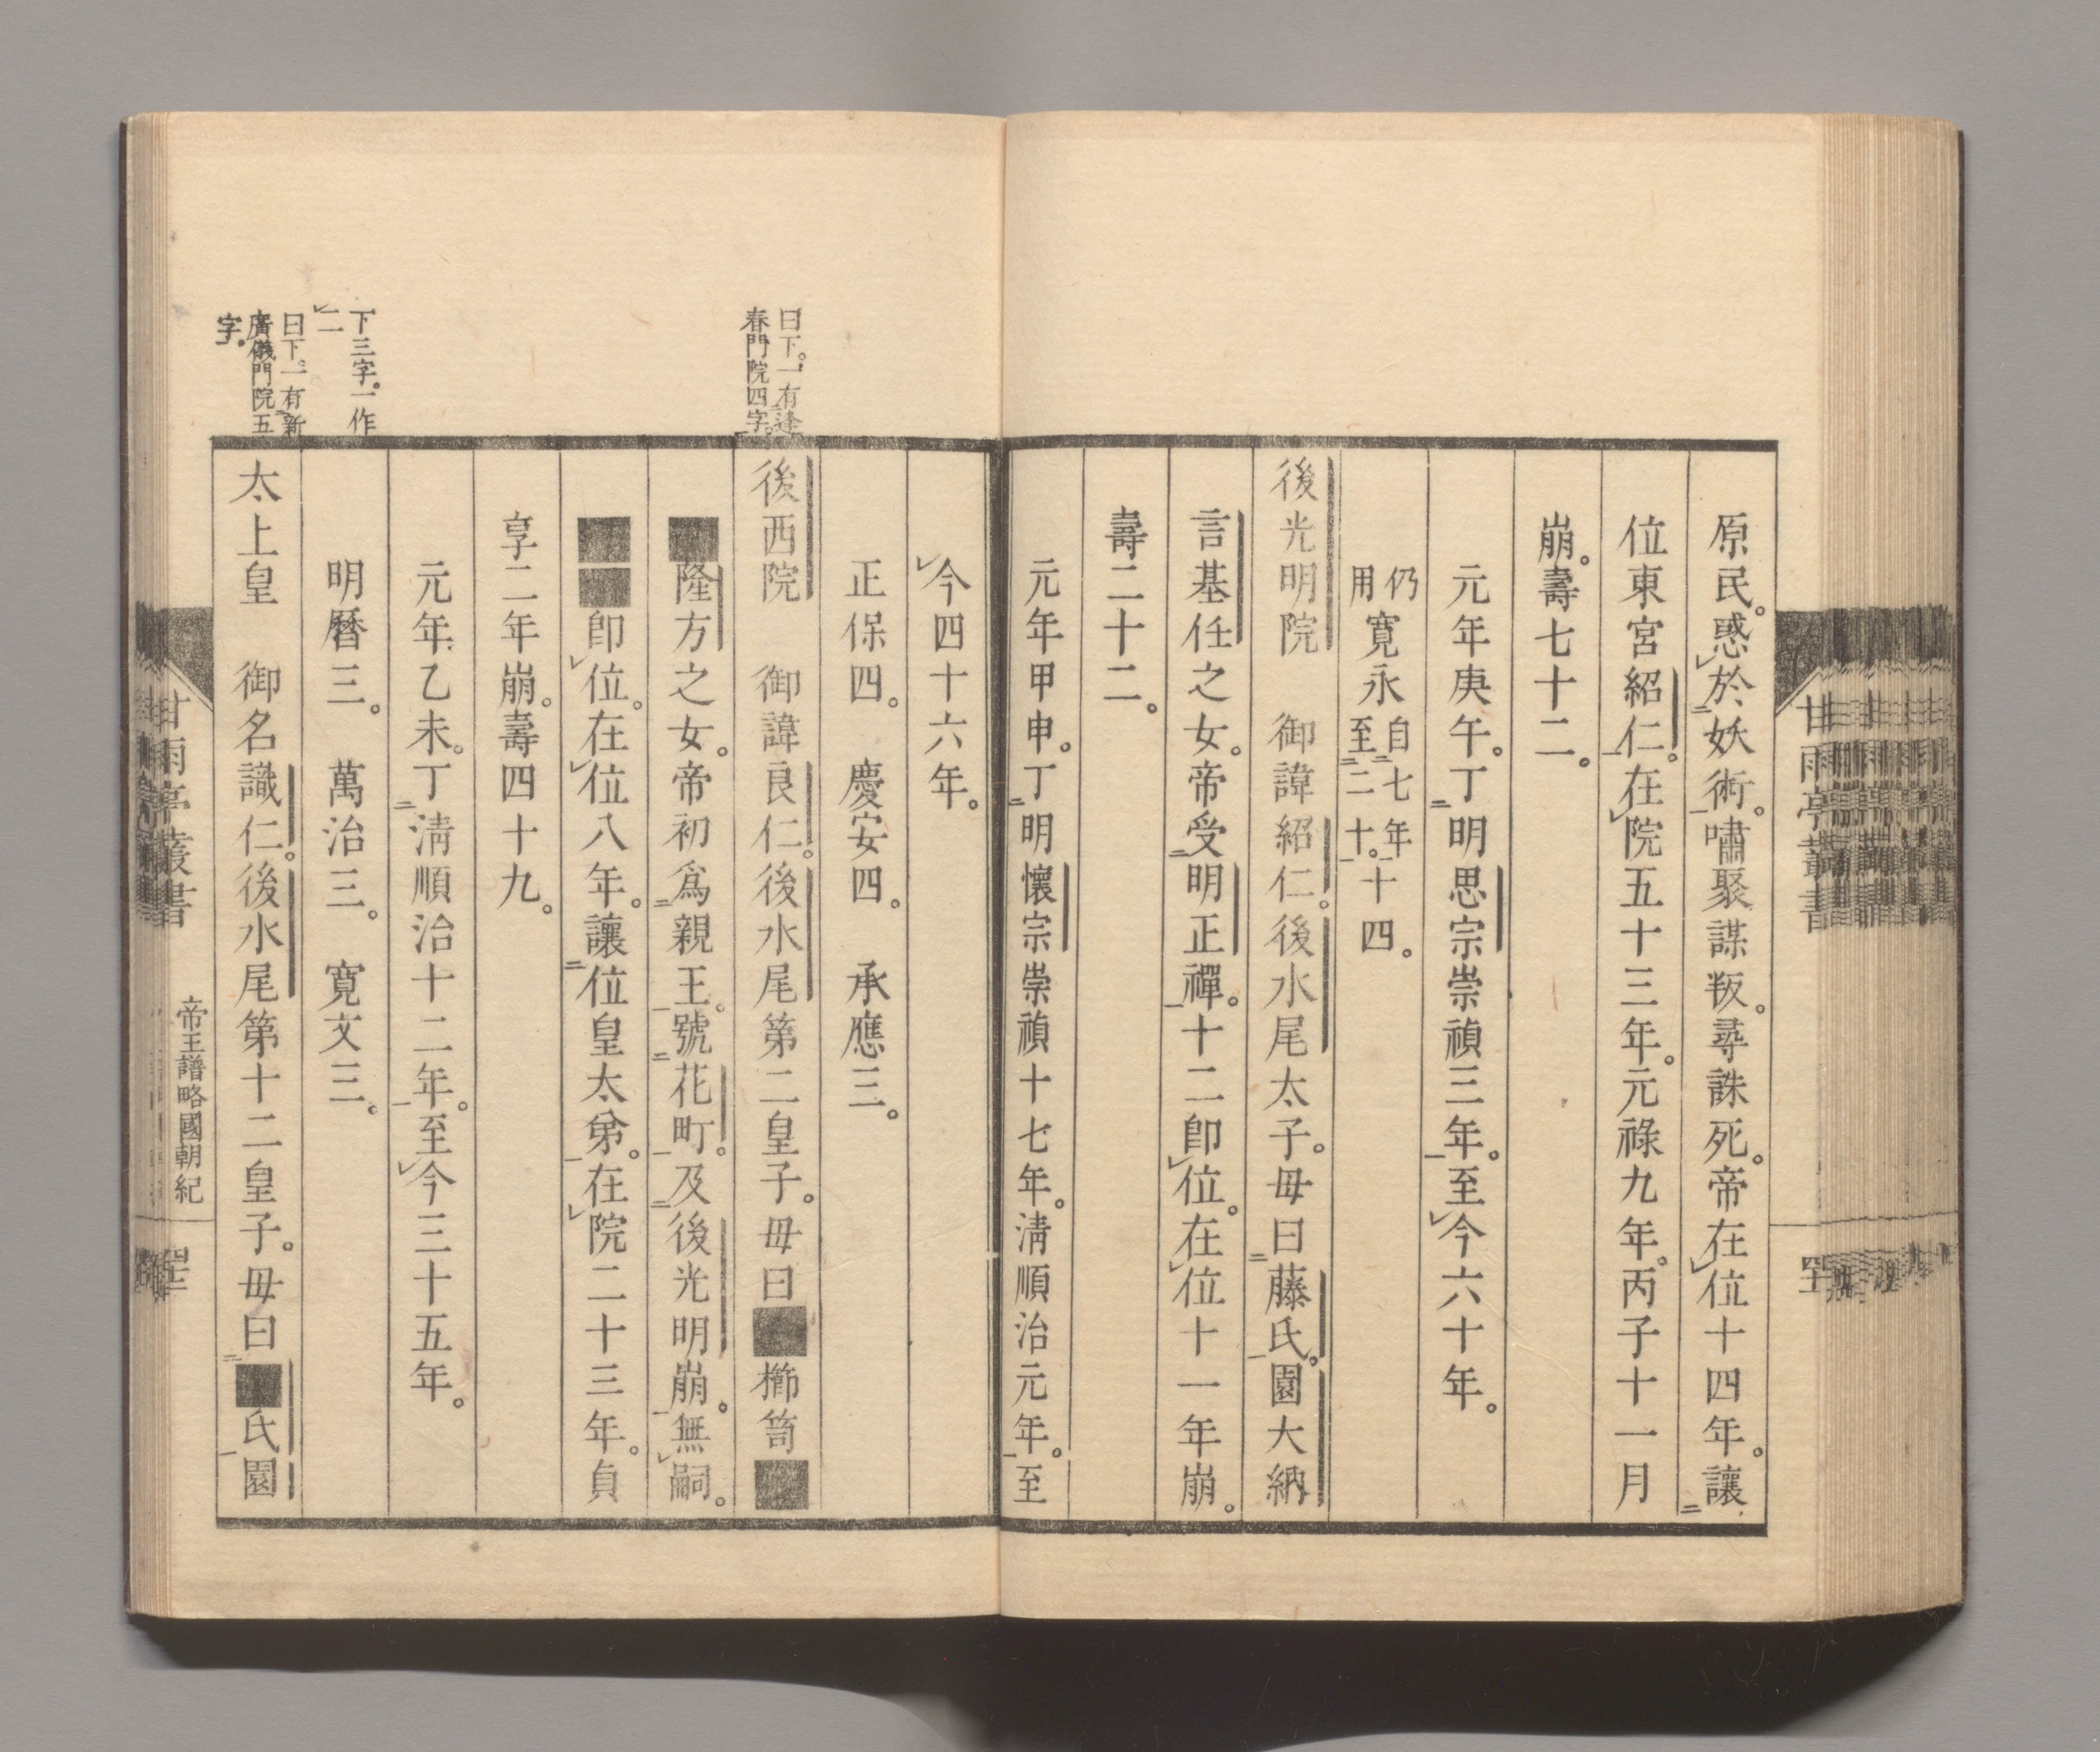 原民。惑於妖術。嘯聚謀叛。尋誅死。帝在位十四年。讓
位東宮紹仁。在院五十三年。元祿九年。丙子十一月
崩。壽七十二。
元年庚午。丁明思宗崇禎三年。至今六十年。
仍用寬永自七年至二十。十四。
後光明院　御諱紹仁。後水尾太子。母曰藤氏。園大納
言基任之女。帝受明正禪。十二卽位。在位十一年崩。
壽二十二。
元年甲申。丁明懷宗崇禎十七年。淸順治元年。至
今四十六年。
正保四。　慶安四。　承應三。
後西院　御諱良仁。後水尾第二皇子。母曰■櫛笥■
■隆方之女。帝初爲親王。號花町。及後光明崩。無嗣。
■■卽位。在位八年。讓位皇太弟。在院二十三年。貞
享二年崩。壽四十九。
元年乙未。丁淸順治十二年。至今三十五年。
明曆三。　萬治三。　寬文三。
太上皇　御名識仁。後水尾第十二皇子。母曰■氏園
曰下。一有逢
春門院四字。
下三字。一作
二
曰下。一有新
廣儀門院五
字。
甘雨亭叢書
甘雨亭叢書
帝王譜略國朝紀